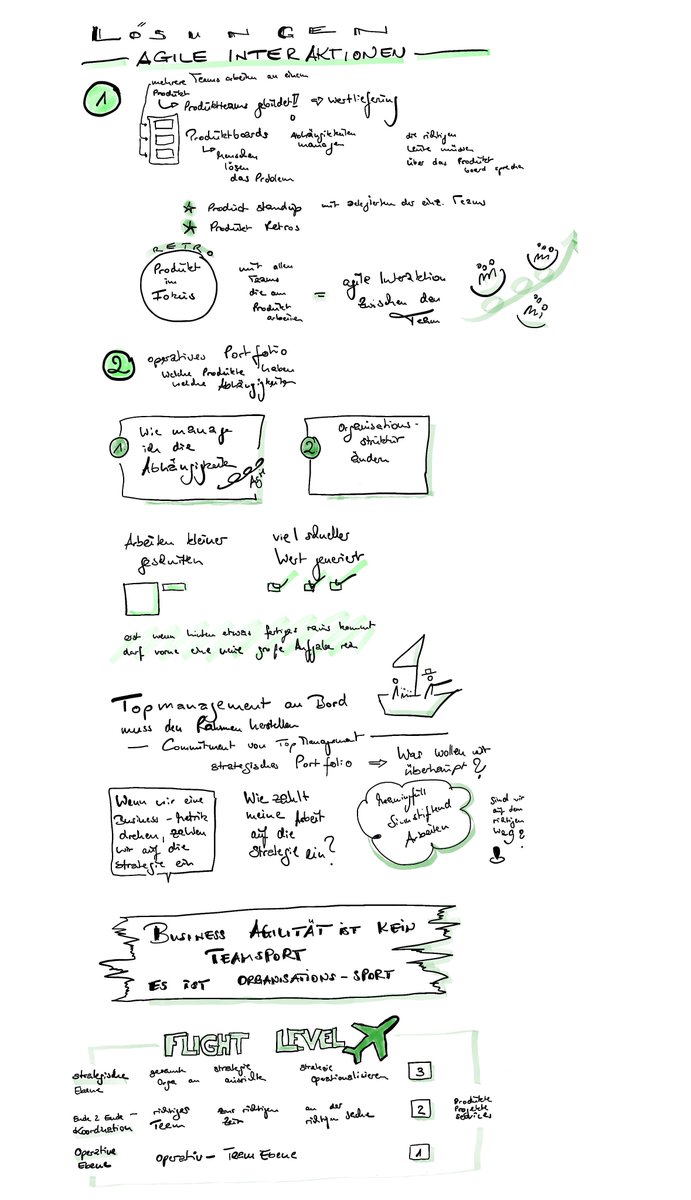 LÖSUNGEN
AGILE INTERAKTIONEN
1
mehrere Teams arbeiten an einem
Produkt
Produktteams gebildet!! ⇒ Wertlieferung
Produktboards
Menschen
lösen
das Problem
Abhängigkeiten
managen
die richtigen
Leute müssen
über das Produkt
board sprechen
Product Standup mit delegierten der einz. Teams
Produkt Retros
RETRO
Produkt
im
Fokus
mit allen
Teams
die am
Produkt
arbeiten
=
agile Interaktion
zwischen den
Team
2
operatives Portfolio
welche Produkte haben
welche Abhängigkeiten
1.
Wie manage
ich die
Abhängigkeiten
2
Organisations-
struktur
ändern
Arbeiten kleiner
geschnitten
viel schneller
Wert generiert
erst wenn hinten etwas fertiges raus kommt
darf vorne eine neue große Aufgabe rein
Topmanagement an Bord
muss den Rahmen herstellen
— Commitment von Top Management
strategisches Portfolio ⇒ Was wollen wir
überhaupt?
Wenn wir eine
Business-Metrik
drehen, zahlen
wir auf die
Strategie ein
Wie zahlt
meine Arbeit
auf die
Strategie ein?
Meaningfull
Sinnstiftend
Arbeiten
Sind wir
auf dem
richtigen
Weg?
BUSINESS AGILITÄT IST KEIN
TEAMSPORT
ES IST ORGANISATIONS-SPORT
FLIGHT LEVEL
strategische
Ebene
gesamte
Orga an
strategie
ausrichten
strategie
operationalisieren
3
Ende 2 Ende -
Koordination
richtiges
Team
zur richtigen
Zeit
an der
richtigen Sache
2
Produkte
Projekte
Services
Operative
Ebene
Operativ - Team Ebene
1